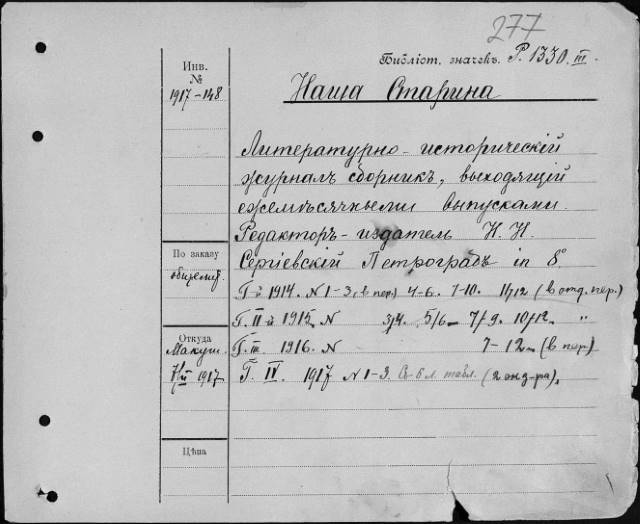 277
Библіот. значекъ. Р. 1330. III.
Инв.
№
1917-148
Наша Старина
Литературно-историческій
журналъ сборникъ, выходящій
ежемѣсячными выпусками.
Редакторъ-издатель Н. Н.
По заказу
Сергіевскій Петроградъ in 8°
Г. I 1914. N 1-3 (в пер.) 4-6. 7-10. 11/12 (в отд. пер.)
Г. II-й 1915. N 3/4. 5/6- 7/9. 10/12. "
Откуда
Макуш.
Г. III 1916. N 7-12- (в пер.)
1917
Г. IV. 1917 N 1-3. табл. (2 экз-ра).
Цѣна